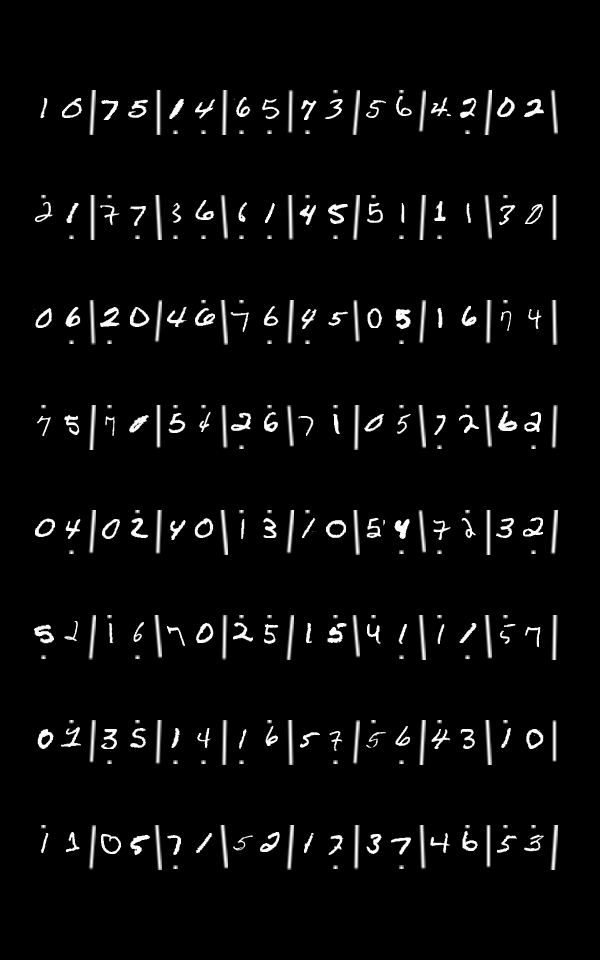 1 0 | 7 5 | 1 4 | 6 5 | 7 3 | 5 6 | 4 2 | 0 2 |
2 1 | 7 7 | 3 6 | 6 1 | 4 5 | 5 1 | 1 1 | 3 0 |
0 6 | 2 0 | 4 6 | 7 6 | 4 5 | 0 5 | 1 6 | 7 4 |
7 5 | 7 0 | 5 4 | 2 6 | 7 1 | 0 5 | 7 2 | 6 2 |
0 4 | 0 2 | 4 0 | 1 3 | 1 0 | 5 4 | 7 2 | 3 2 |
5 2 | 1 6 | 7 0 | 2 5 | 1 5 | 4 1 | 1 1 | 5 7 |
0 1 | 3 5 | 1 4 | 1 6 | 5 7 | 5 6 | 4 3 | 1 0 |
1 1 | 0 5 | 7 1 | 5 2 | 1 2 | 3 7 | 4 6 | 5 3 |